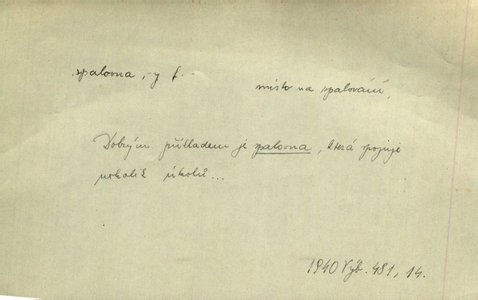 spalovna, -y f.
místo na spalování,
Dobrým příkladem je spalovna, která spojuje
několik úkolů...
1940 Výb. 481, 14.